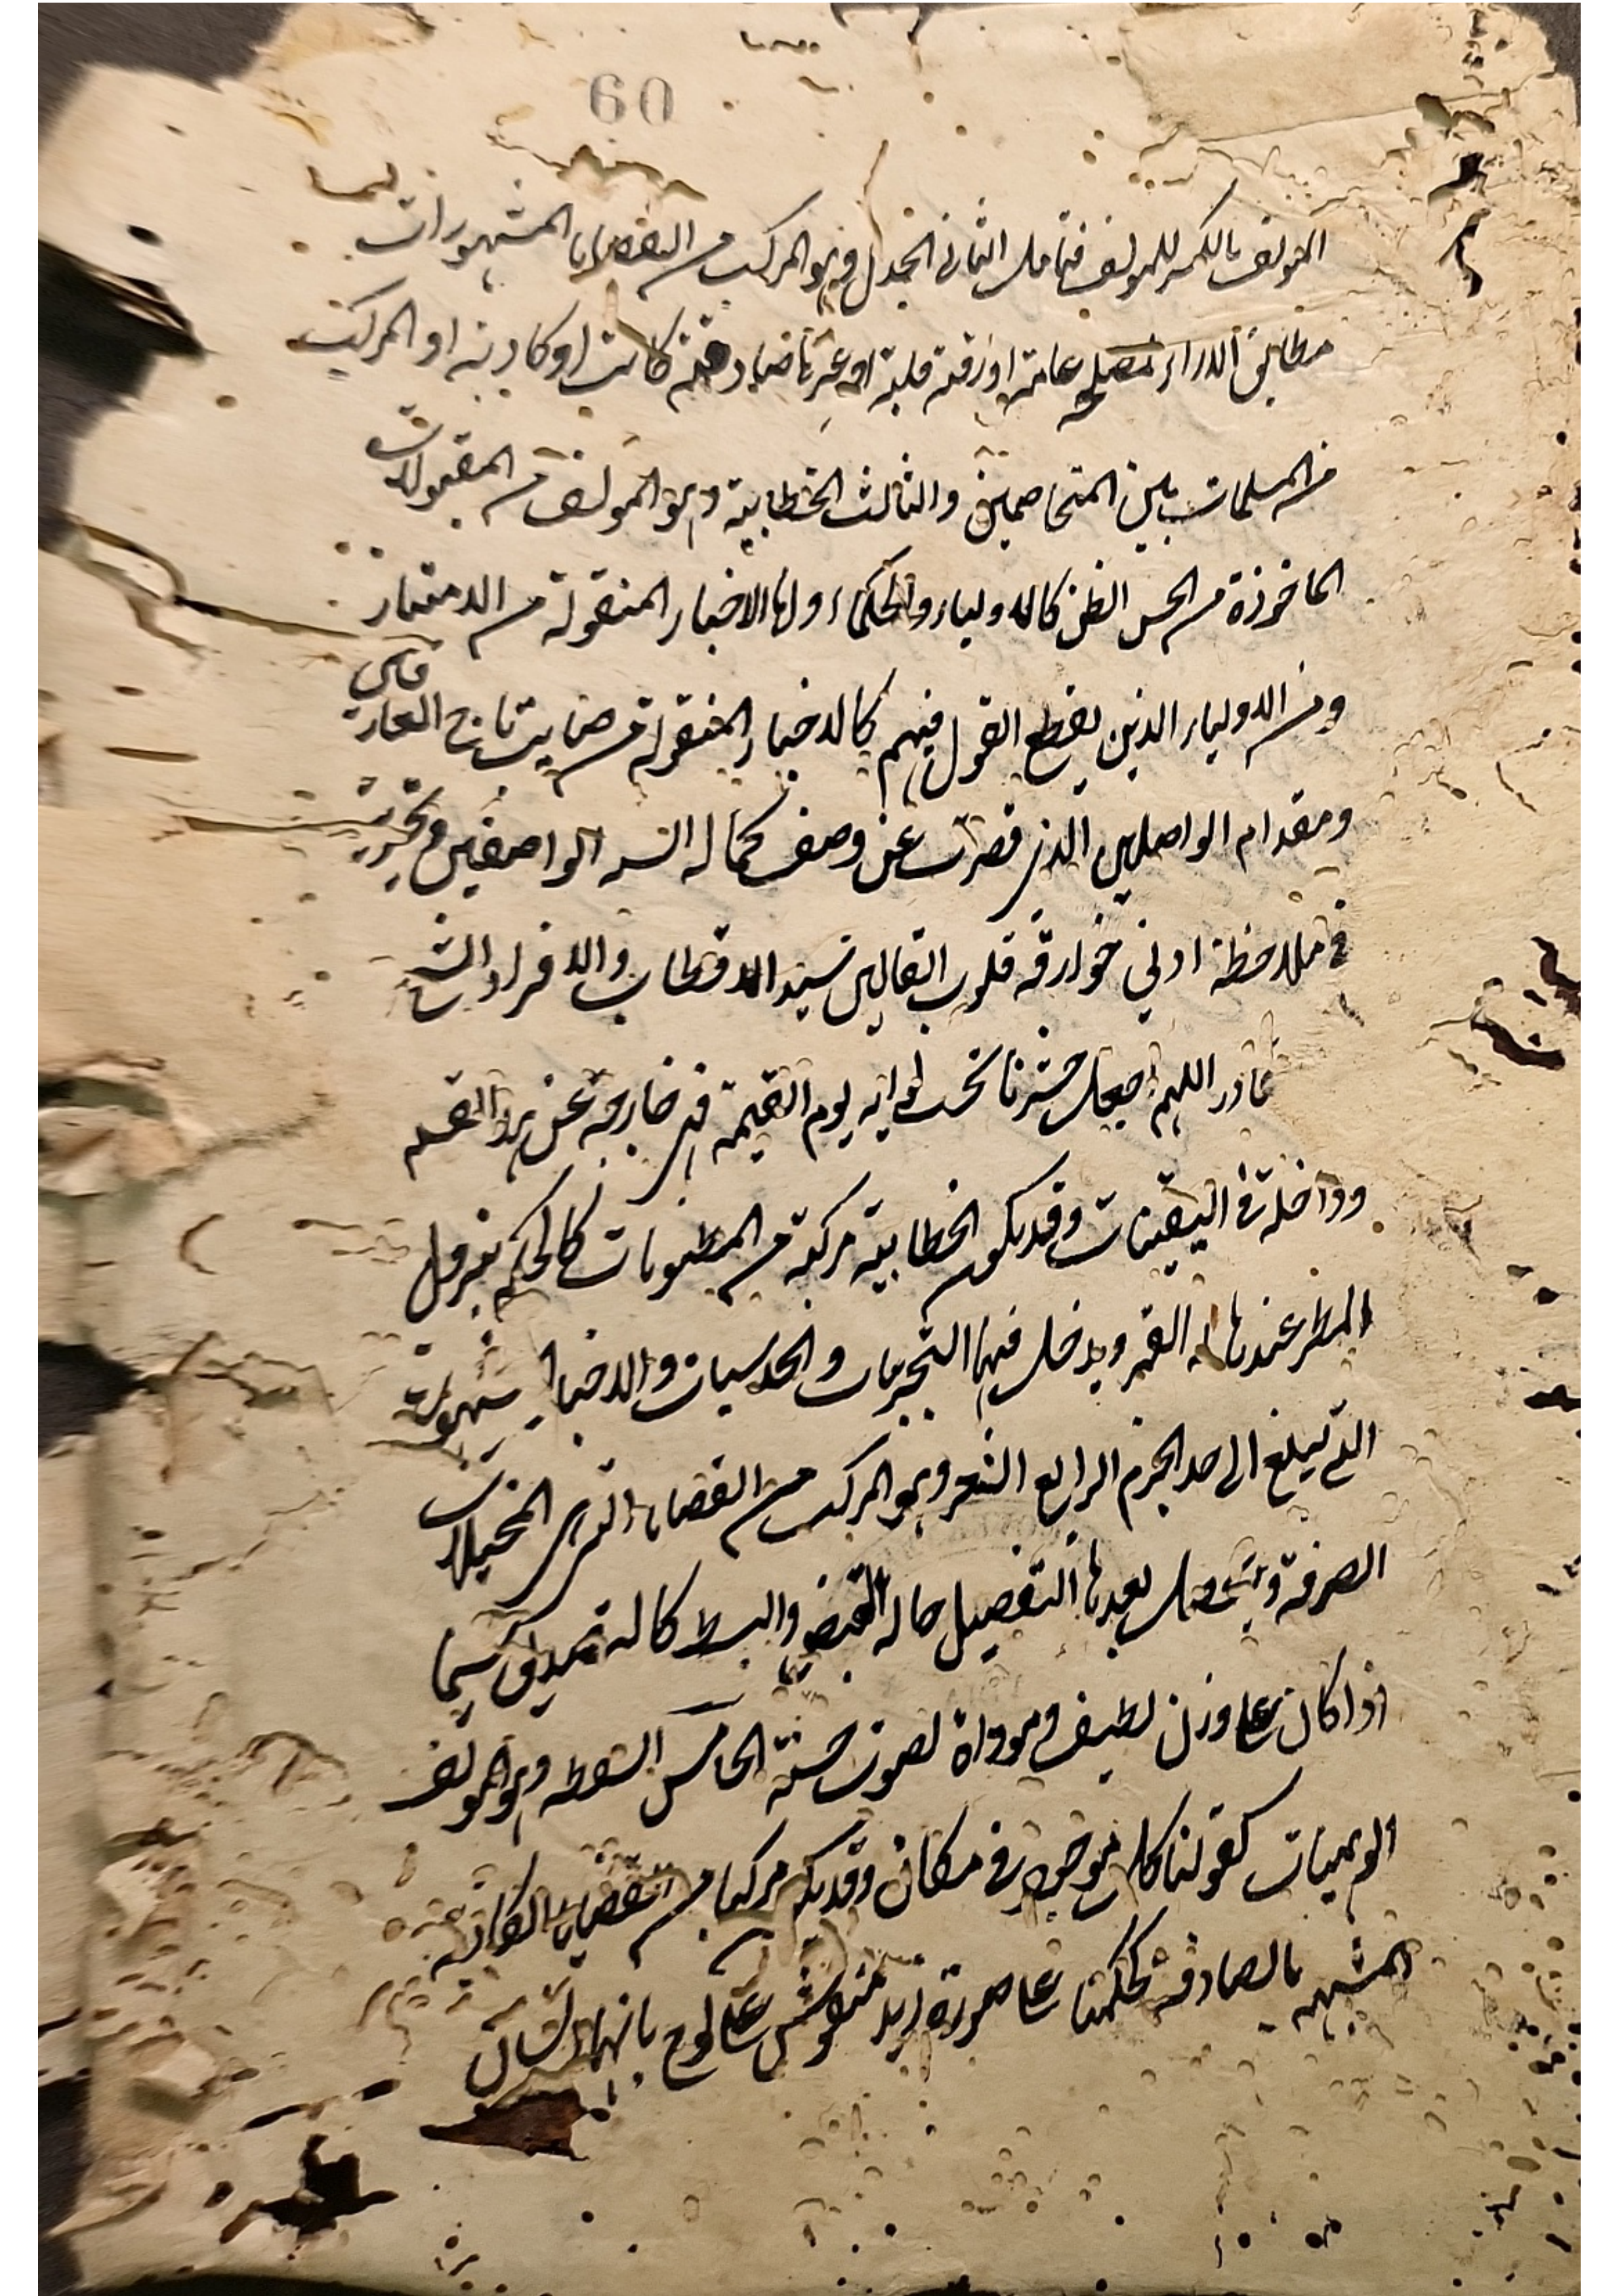 60
المؤلف بالكسر للمولف فتامل الثانى الجدل وهو المركب من القضايا المشهورات
مطابق الاراء لمصلحة عامة او رقة قلبة او غيرها صادقة كانت او كاذبة او المركب
من المسلمات بين المتخاصمين والثالث الخطابية وهو المولف من المقبولات
الماخوذة من الحسن الظن كالاولياء والحكماء واما الاخبار المنقولة من
ومن الاولياء الذين يقطع القول فيهم كالاخبار المنقولة من تاج العارفين
ومقدام الواصلين الذى قصرت عن وصف كماله السنة الواصفين وتحيرت
فى ملاحظة ادنى خوارقه قلوب القالين سيد الاقطاب والافراد الشيخ
اللهم اجعل حشرنا تحت لوايه يوم القيمة فهى خارجة عن هذا القسم
وداخلة فى اليقينات وقد يكون الخطابية مركبة من المظنونات كالحكم بنزول
المطر عند هالة القمر ويدخل فيها التجربيات والحدسيات والاخبار
التى تبلغ الى حد الجزم الرابع الشعر وهو المركب من القضايا التى هى المخيلات
الصرفة ويحصل بعدها التفصيل حالة القبض والبسط كالتصديق سيما
اذا كان على وزن لطيف وموداة لصوت حسنة الخامس السفسطه وهو المولف
الوهميات كقولنا كل موجود فى مكان وقد يكون مركبا من القضايا الكاذبة
المشبهه بالصادقة كحكمنا على صورة زيد منقوش على لوح بانها انسان